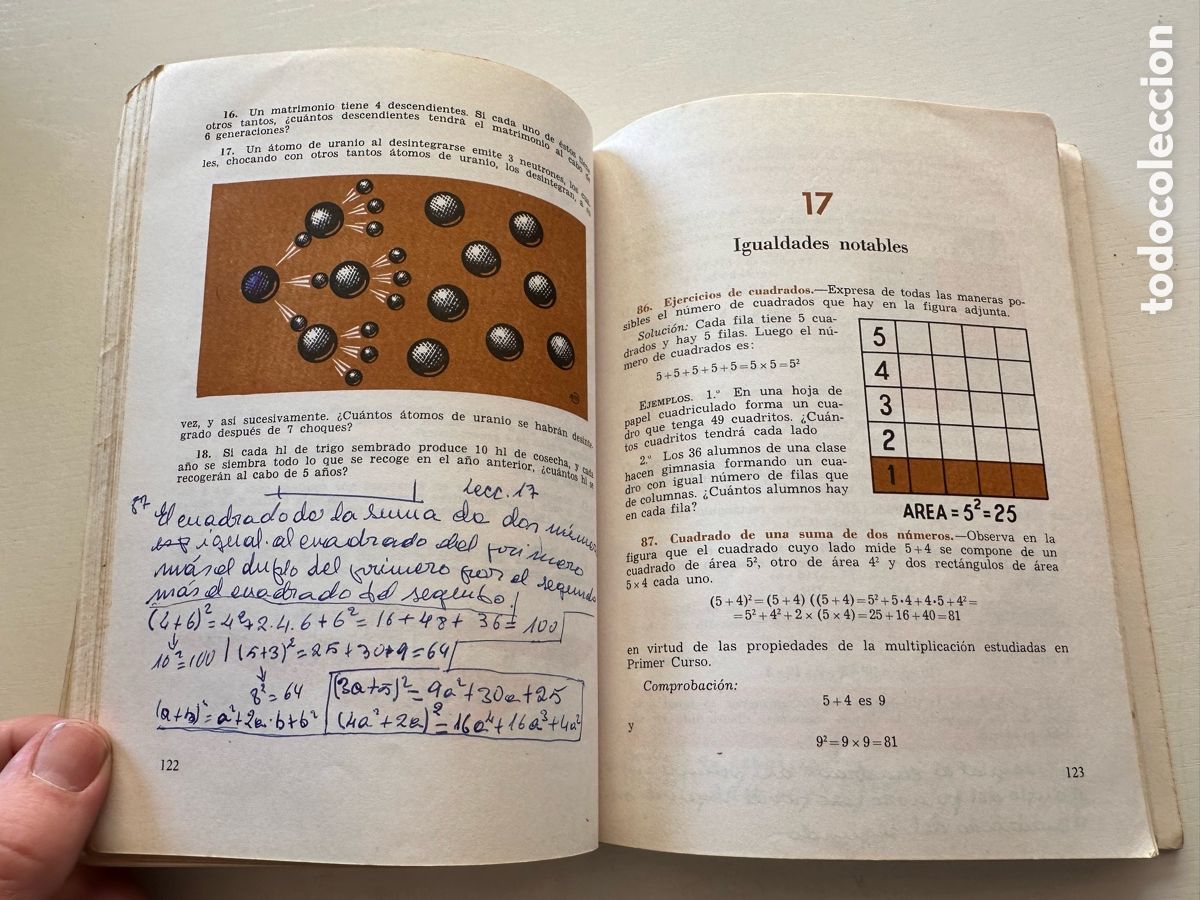 16. Un matrimonio tiene 4 descendientes. Si cada uno de éstos tiene
otros tantos, ¿cuántos descendientes tendrá el matrimonio al cabo de
6 generaciones?
17. Un átomo de uranio al desintegrarse emite 3 neutrones, los cua-
les, chocando con otros tantos átomos de uranio, los desintegran, a su
vez, y así sucesivamente. ¿Cuántos átomos de uranio se habrán desinte-
grado después de 7 choques?
18. Si cada hl de trigo sembrado produce 10 hl de cosecha, y cada
año se siembra todo lo que se recoge en el año anterior, ¿cuántos hl se
recogerán al cabo de 5 años?
Lecc. 17
87 El cuadrado de la suma de dos números
es igual al cuadrado del primero
más el duplo del primero por el segundo
más el cuadrado del segundo.
(4+6)²=4²+2.4.6+6²=16+48+36=100
10²=100 (5+3)²=25+30+9=64
8²=64 (3a+5)²=9a²+30a+25
(a+b)²=a²+2a·b+b² (4a²+2a)²=16a⁴+16a³+4a²
122
17
Igualdades notables
86. Ejercicios de cuadrados.—Expresa de todas las maneras po-
sibles el número de cuadrados que hay en la figura adjunta.
Solución: Cada fila tiene 5 cua-
drados y hay 5 filas. Luego el nú-
mero de cuadrados es:
5+5+5+5+5=5×5=5²
EJEMPLOS. 1.º En una hoja de
papel cuadriculado forma un cua-
dro que tenga 49 cuadritos. ¿Cuán-
tos cuadritos tendrá cada lado
2.º Los 36 alumnos de una clase
hacen gimnasia formando un cua-
dro con igual número de filas que
de columnas. ¿Cuántos alumnos hay
en cada fila?
5
4
3
2
1
AREA = 5² = 25
87. Cuadrado de una suma de dos números.—Observa en la
figura que el cuadrado cuyo lado mide 5+4 se compone de un
cuadrado de área 5², otro de área 4² y dos rectángulos de área
5×4 cada uno.
(5+4)²=(5+4) ((5+4)=5²+5·4+4·5+4²=
=5²+4²+2×(5×4)=25+16+40=81
en virtud de las propiedades de la multiplicación estudiadas en
Primer Curso.
Comprobación:
5+4 es 9
y
9²=9×9=81
123
todocoleccion